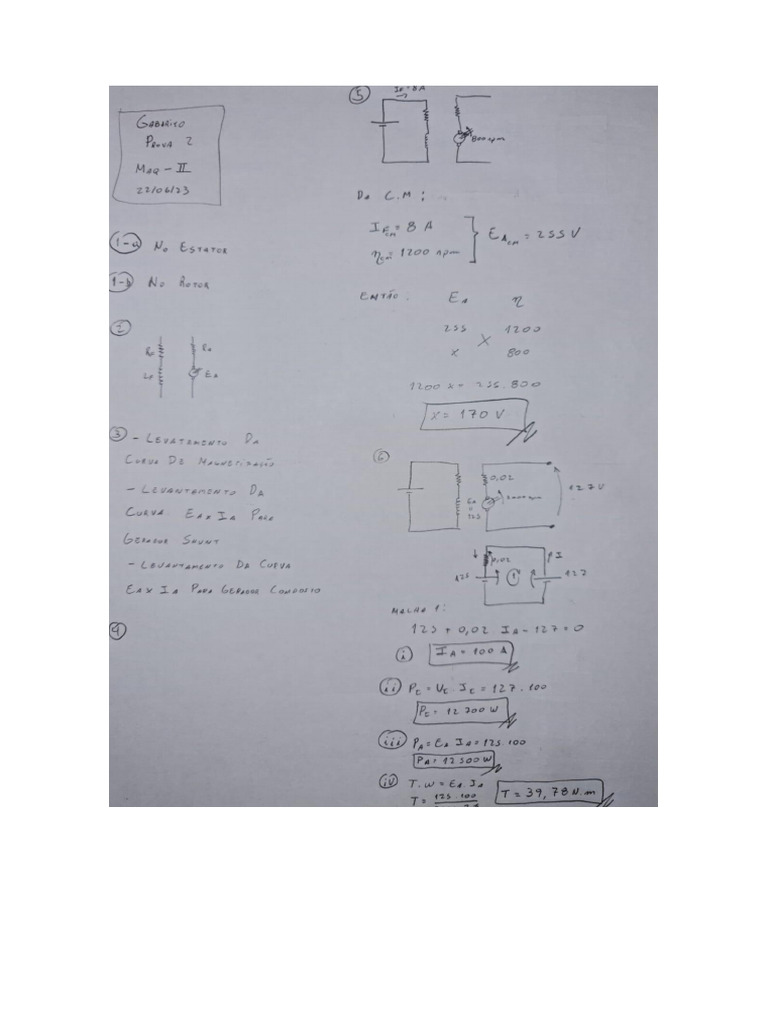 GABARITO
PROVA 2
MAQ - II
22/06/23
1-a NO ESTATOR
1-b NO ROTOR
2
RF
RA
EA
3 - LEVATEMENTO DA
CURVA DE MAGNETIZAÇÃO
- LEVANTAMENTO DA
CURVA EA x IA PARA
GERADOR SHUNT
- LEVANTAMENTO DA CURVA
EA x IA PARA GERADOR COMPOSTO
4
5
IF = 8 A
800 rpm
DA C.M:
IFCM = 8 A
ηCM = 1200 rpm
EACM = 255 V
ENTÃO: EA η
255 1200
X
x 800
1200 x = 255.800
X = 170 V
6
0,02
EA
=
125
127 V
0,02
I
125
1
127
MALHA 1:
125 + 0,02 IA - 127 = 0
i IA = 100 A
ii PE = VE . IE = 127 . 100
PE = 12 700 W
iii PA = EA IA = 125.100
PA = 12 500 W
iv T.W = EA.IA
T = 125.100
T = 39,78 N.m